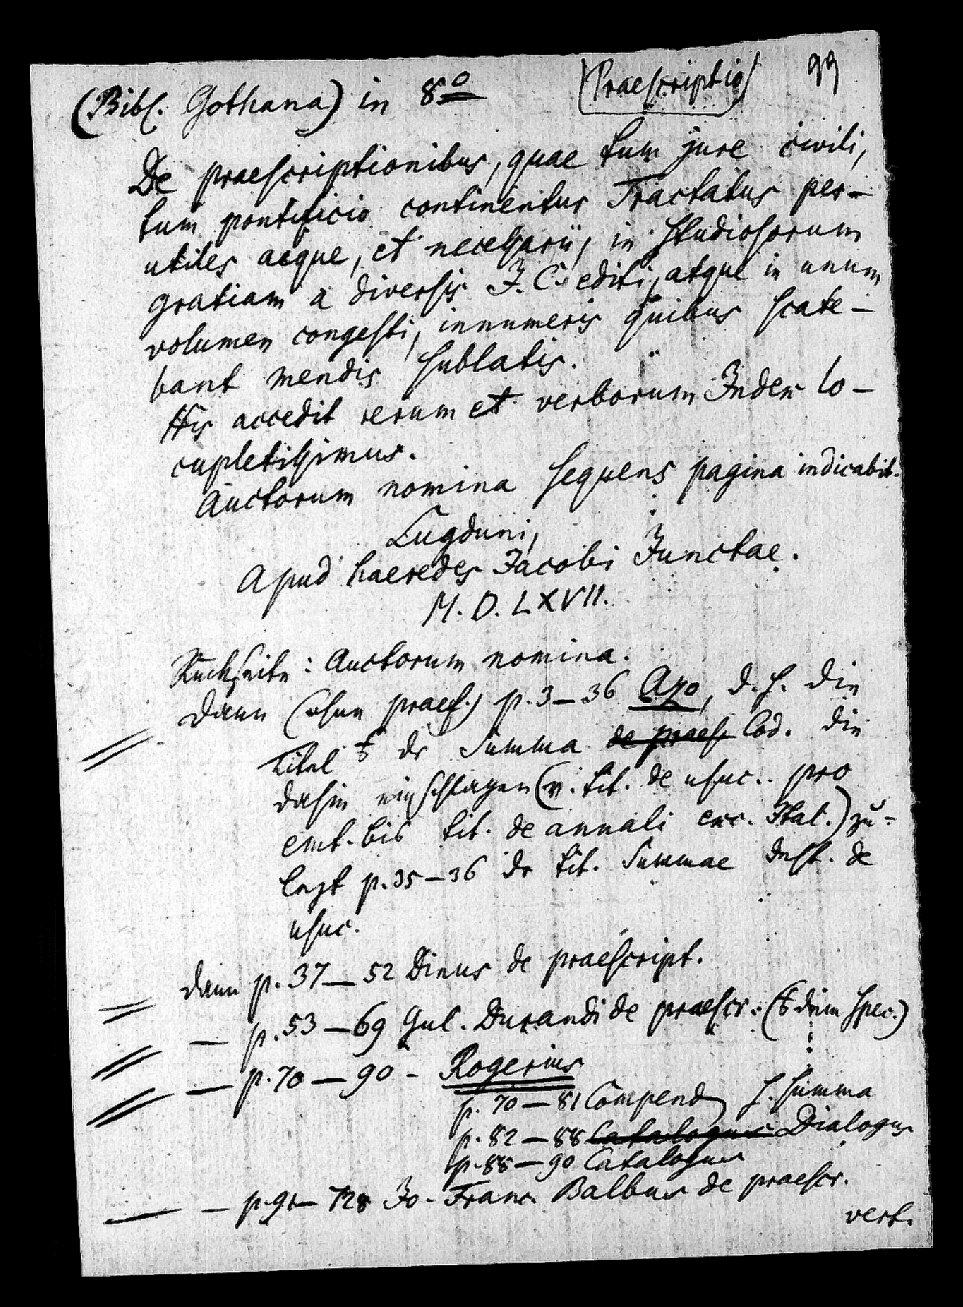 (Bibl. Gothana) in 8o
Praescriptio 99
De praescriptionibus, quae tum jure civili,
tum pontificio continentur Tractatus per-
utiles aeque, et necessarii, in studiosorum
gratiam a diversis J. C. editi, atque in unum
volumen congesti, innumeris quibus scate-
bant mendis sublatis.
His accedit rerum et verborum Index lo-
cupletissimus.
Auctorum nomina sequens pagina indicabit.
Lugduni,
Apud haeredes Jacobi Junctae.
M. D. LXVII.
Rückseite: Auctorum nomina.
Dann (ohne praef.) p. 3-36 Azo, d. h. die
Titel der Summa de praesc Cod. die
dahin einschlagen (v. tit. de usuc. pro
emt. bis tit. de annali exc. Ital.) zu-
letzt p. 35-36 der tit. Summae Inst. de
usuc.
dann p. 37-52 Dinus de praescript.
- p. 53-69 Gul. Durandi de praescr. (e dem spec.)
- p. 70-90 - Rogerius
p. 70-81 Compend s. Summa
p. 82-88 Catalogus Dialogus
p. 88-90 Catalogus
- p. 91- Jo. Franc. Balbus de praescr.
vert.